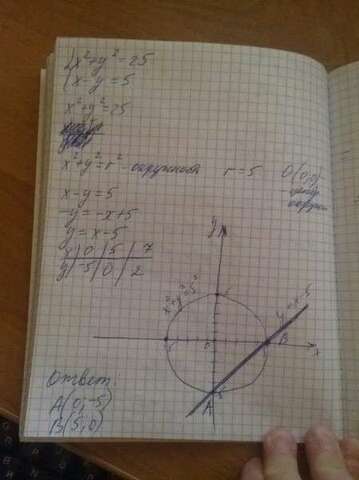 { x² + y² = 25
{ x - y = 5
x² + y² = 25
x² + y² = r² - окружность r = 5 O(0;0) -
центр
окружн
x - y = 5
-y = -x + 5
y = x - 5
x | 0 | 5 | 7
y | -5 | 0 | 2
y
x² + y² = 5²
5
y = x - 5
-5
0
B
x
-5
A
Ответ:
A(0; -5)
B(5; 0)